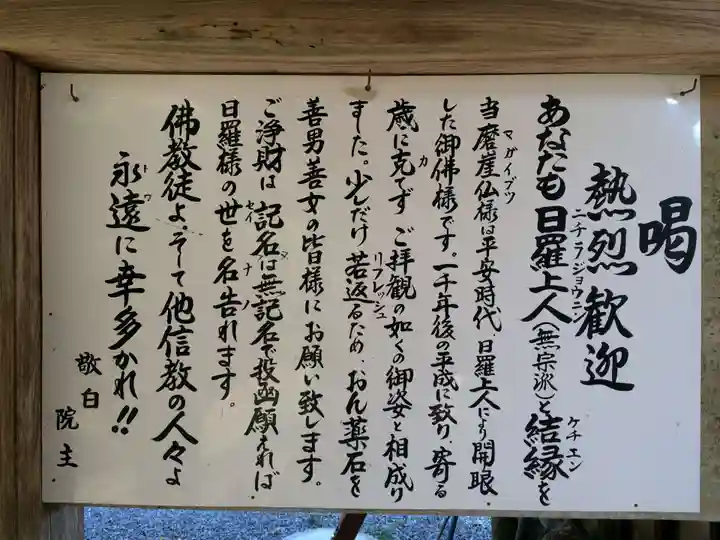 喝
熱烈歓迎
あなたも日羅上人(無宗派)と結縁を
ニチラジョウニン
ケチエン
当磨崖仏様は平安時代、日羅上人により開眼
マガイブツ
した御佛様です。一千年後の平成に致り、寄る
歳に克てず ご拝観の如くの御姿と相成り
カ
ました。少しだけ若返るため、おん薬石を
リフレッシュ
善男善女の皆様にお願い致します。
ご浄財は 記名は無記名で投函願えれば
日羅様の世を名告れます。
セイ
ナノ
佛教徒よ、そして他信教の人々よ
永遠に幸多かれ!!
トワ
敬白
院主